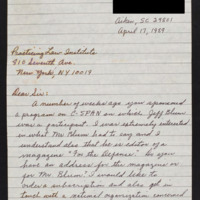 Aiken, SC 29801
April 17, 1989
Practicing Law Institute
810 Seventh Ave.
New York, N.Y. 10019
Dear Sir:
A number of weeks ago you sponsored
a program on C-SPAN in which Jeff Blum
was a participant. I was extremely interested
in what Mr Blum had to say and I
understand also that he is editor of a
magazine "In the Defense". Do you
have an address for this magazine or
for Mr. Blum? I would like to
order a subscription and also get in
touch with a national organization concerned